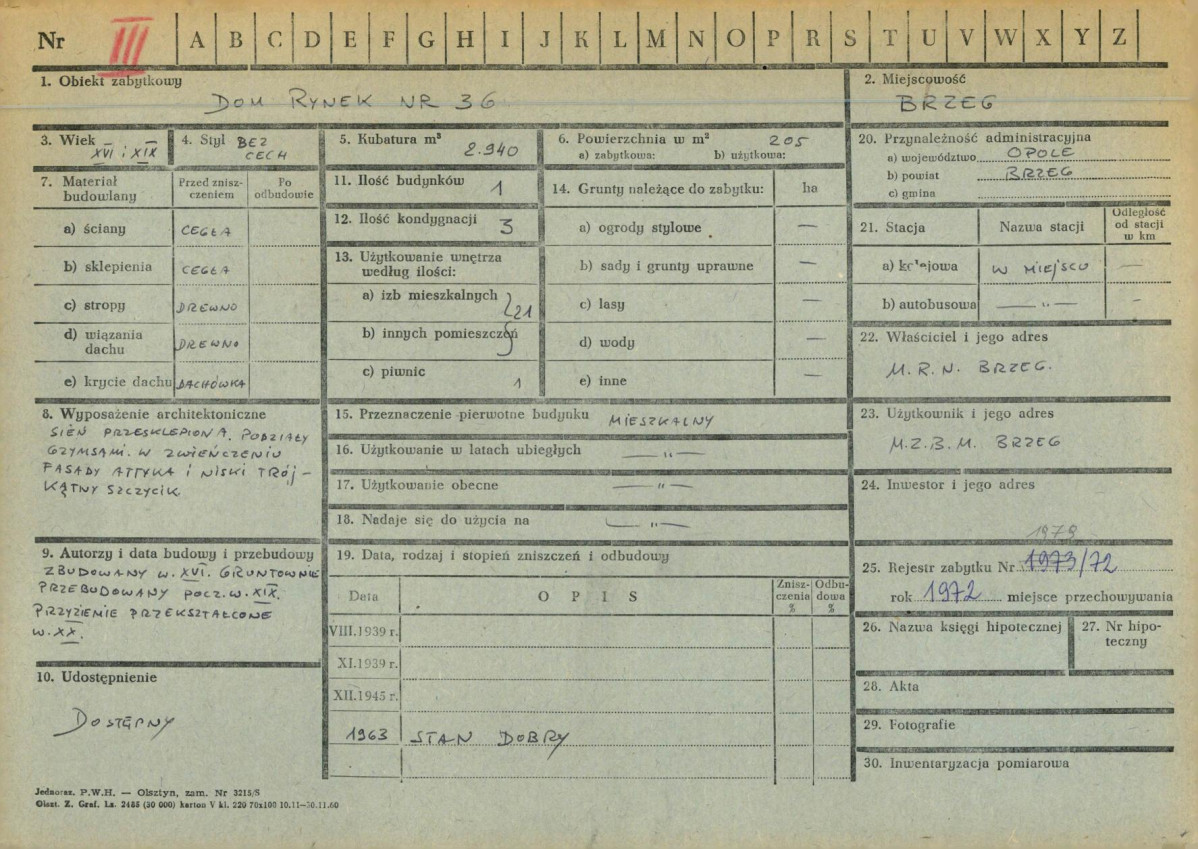 Nr III A B C D E F G H I J K L M N O P R S T U V W X Y Z
1. Obiekt zabytkowy
DOM RYNEK NR 36
2. Miejscowość
BRZEG
3. Wiek
XVI i XIX
4. Styl BEZ
CECH
5. Kubatura m³
2.940
6. Powierzchnia w m² 205
a) zabytkowa: b) użytkowa:
7. Materiał
budowlany
Przed znisz-
czeniem
Po
odbudowie
a) ściany CEGŁA
b) sklepienia CEGŁA
c) stropy DREWNO
d) wiązania
dachu DREWNO
e) krycie dachu DACHÓWKA
8. Wyposażenie architektoniczne
SIEŃ PRZESKLEPIONA. PODZIAŁY
GZYMSAMI. W ZWIEŃCZENIU
FASADY ATTYKA I NISKI TRÓJ-
KĄTNY SZCZYCIK
9. Autorzy i data budowy i przebudowy
ZBUDOWANY W. XVI. GRUNTOWNIE
PRZEBUDOWANY POCZ. W. XIX.
PRZYZIEMIE PRZEKSZTAŁCONE
W. XX.
10. Udostępnienie
DOSTĘPNY
11. Ilość budynków 1
12. Ilość kondygnacji 3
13. Użytkowanie wnętrza
według ilości:
a) izb mieszkalnych
21
b) innych pomieszczeń
c) piwnic 1
14. Grunty należące do zabytku: ha
a) ogrody stylowe —
b) sady i grunty uprawne —
c) lasy —
d) wody —
e) inne —
15. Przeznaczenie pierwotne budynku MIESZKALNY
16. Użytkowanie w latach ubiegłych — „ —
17. Użytkowanie obecne — „ —
18. Nadaje się do użycia na — „ —
19. Data, rodzaj i stopień zniszczeń i odbudowy
Data OPIS Znisz-
czenia
% Odbu-
dowa
%
VIII.1939 r.
XI.1939 r.
XII.1945 r.
1963 STAN DOBRY
20. Przynależność administracyjna
a) województwo OPOLE
b) powiat BRZEG
c) gmina
21. Stacja Nazwa stacji Odległość
od stacji
w km
a) kolejowa W MIEJSCU —
b) autobusowa — „ — —
22. Właściciel i jego adres
M.R.N. BRZEG.
23. Użytkownik i jego adres
M.Z.B.M. BRZEG
24. Inwestor i jego adres
1979
25. Rejestr zabytku Nr 1973/72
rok 1972 miejsce przechowywania
26. Nazwa księgi hipotecznej
27. Nr hipo-
teczny
28. Akta
29. Fotografie
30. Inwentaryzacja pomiarowa
Jednoraz. P.W.H. — Olsztyn, zam. Nr 3215/S
Olszt. Z. Graf. Lz. 2455 (30 000) karton V kl. 220 70x100 10.11—30.11.60